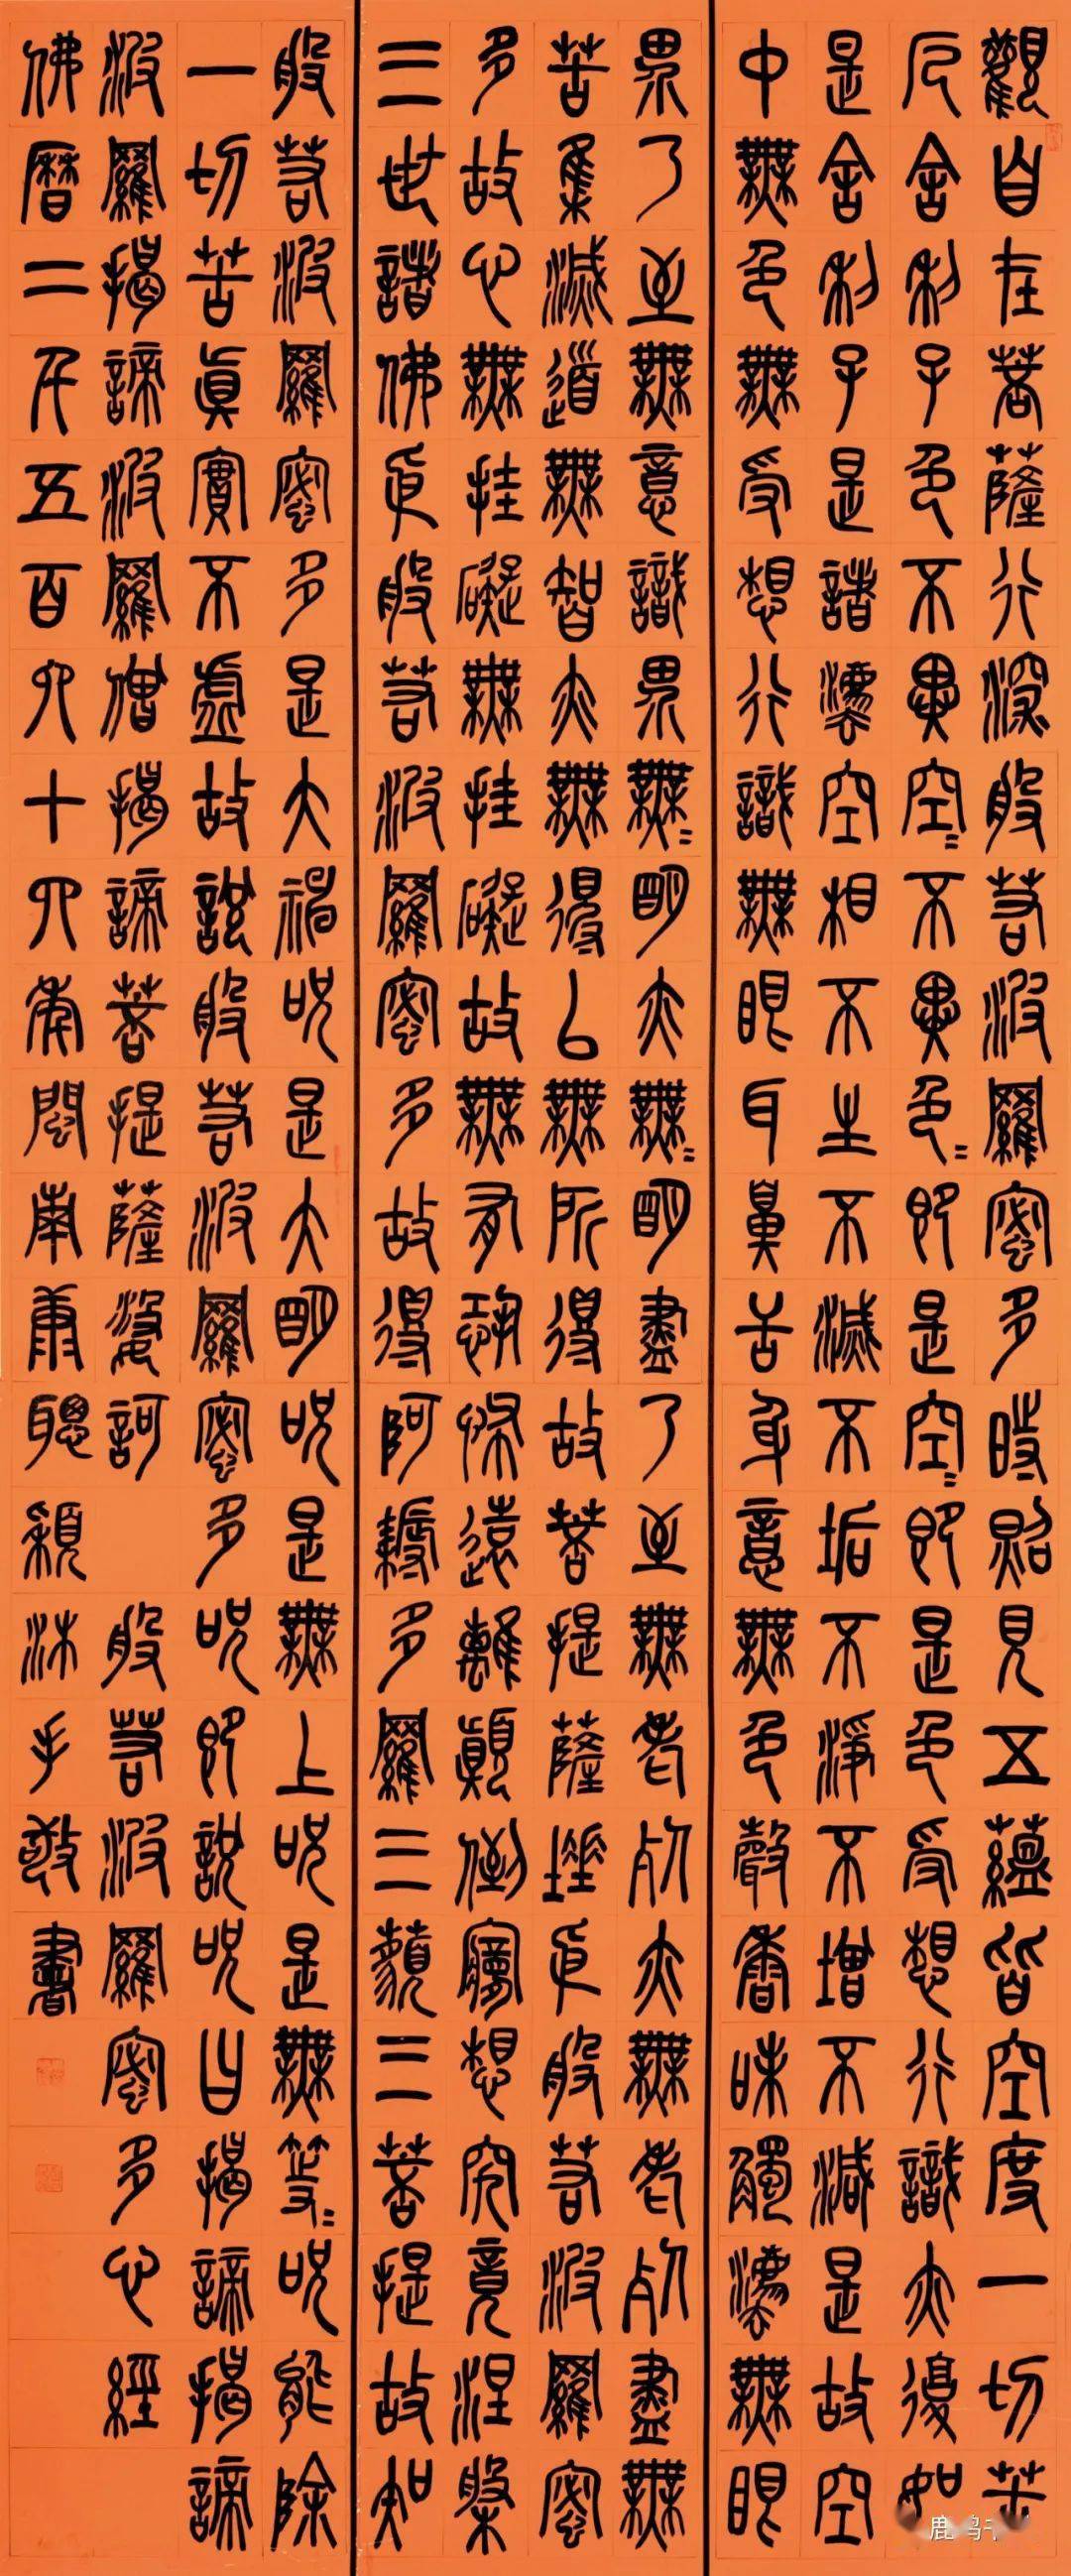 觀自在菩薩行深般若波羅蜜多時照見五蘊皆空度一切苦
厄舍利子色不異空〻不異色〻即是空〻即是色受想行識亦復如
是舍利子是諸法空相不生不滅不垢不淨不增不減是故空
中無色無受想行識無眼耳鼻舌身意無色聲香味觸法無眼
界乃至無意識界無〻明亦無〻明盡乃至無老死亦無老死盡無
苦集滅道無智亦無得以無所得故菩提薩埵依般若波羅蜜
多故心無挂礙無挂礙故無有恐怖遠離顛倒夢想究竟涅槃
三世諸佛依般若波羅蜜多故得阿耨多羅三藐三菩提故知
般若波羅蜜多是大神咒是大明咒是無上咒是無等〻咒能除
一切苦真實不虛故說般若波羅蜜多咒即說咒曰揭諦揭諦
波羅揭諦波羅僧揭諦菩提薩婆訶 般若波羅蜜多心經
佛曆二千五百六十六年閩南康聰穎沐手敬書